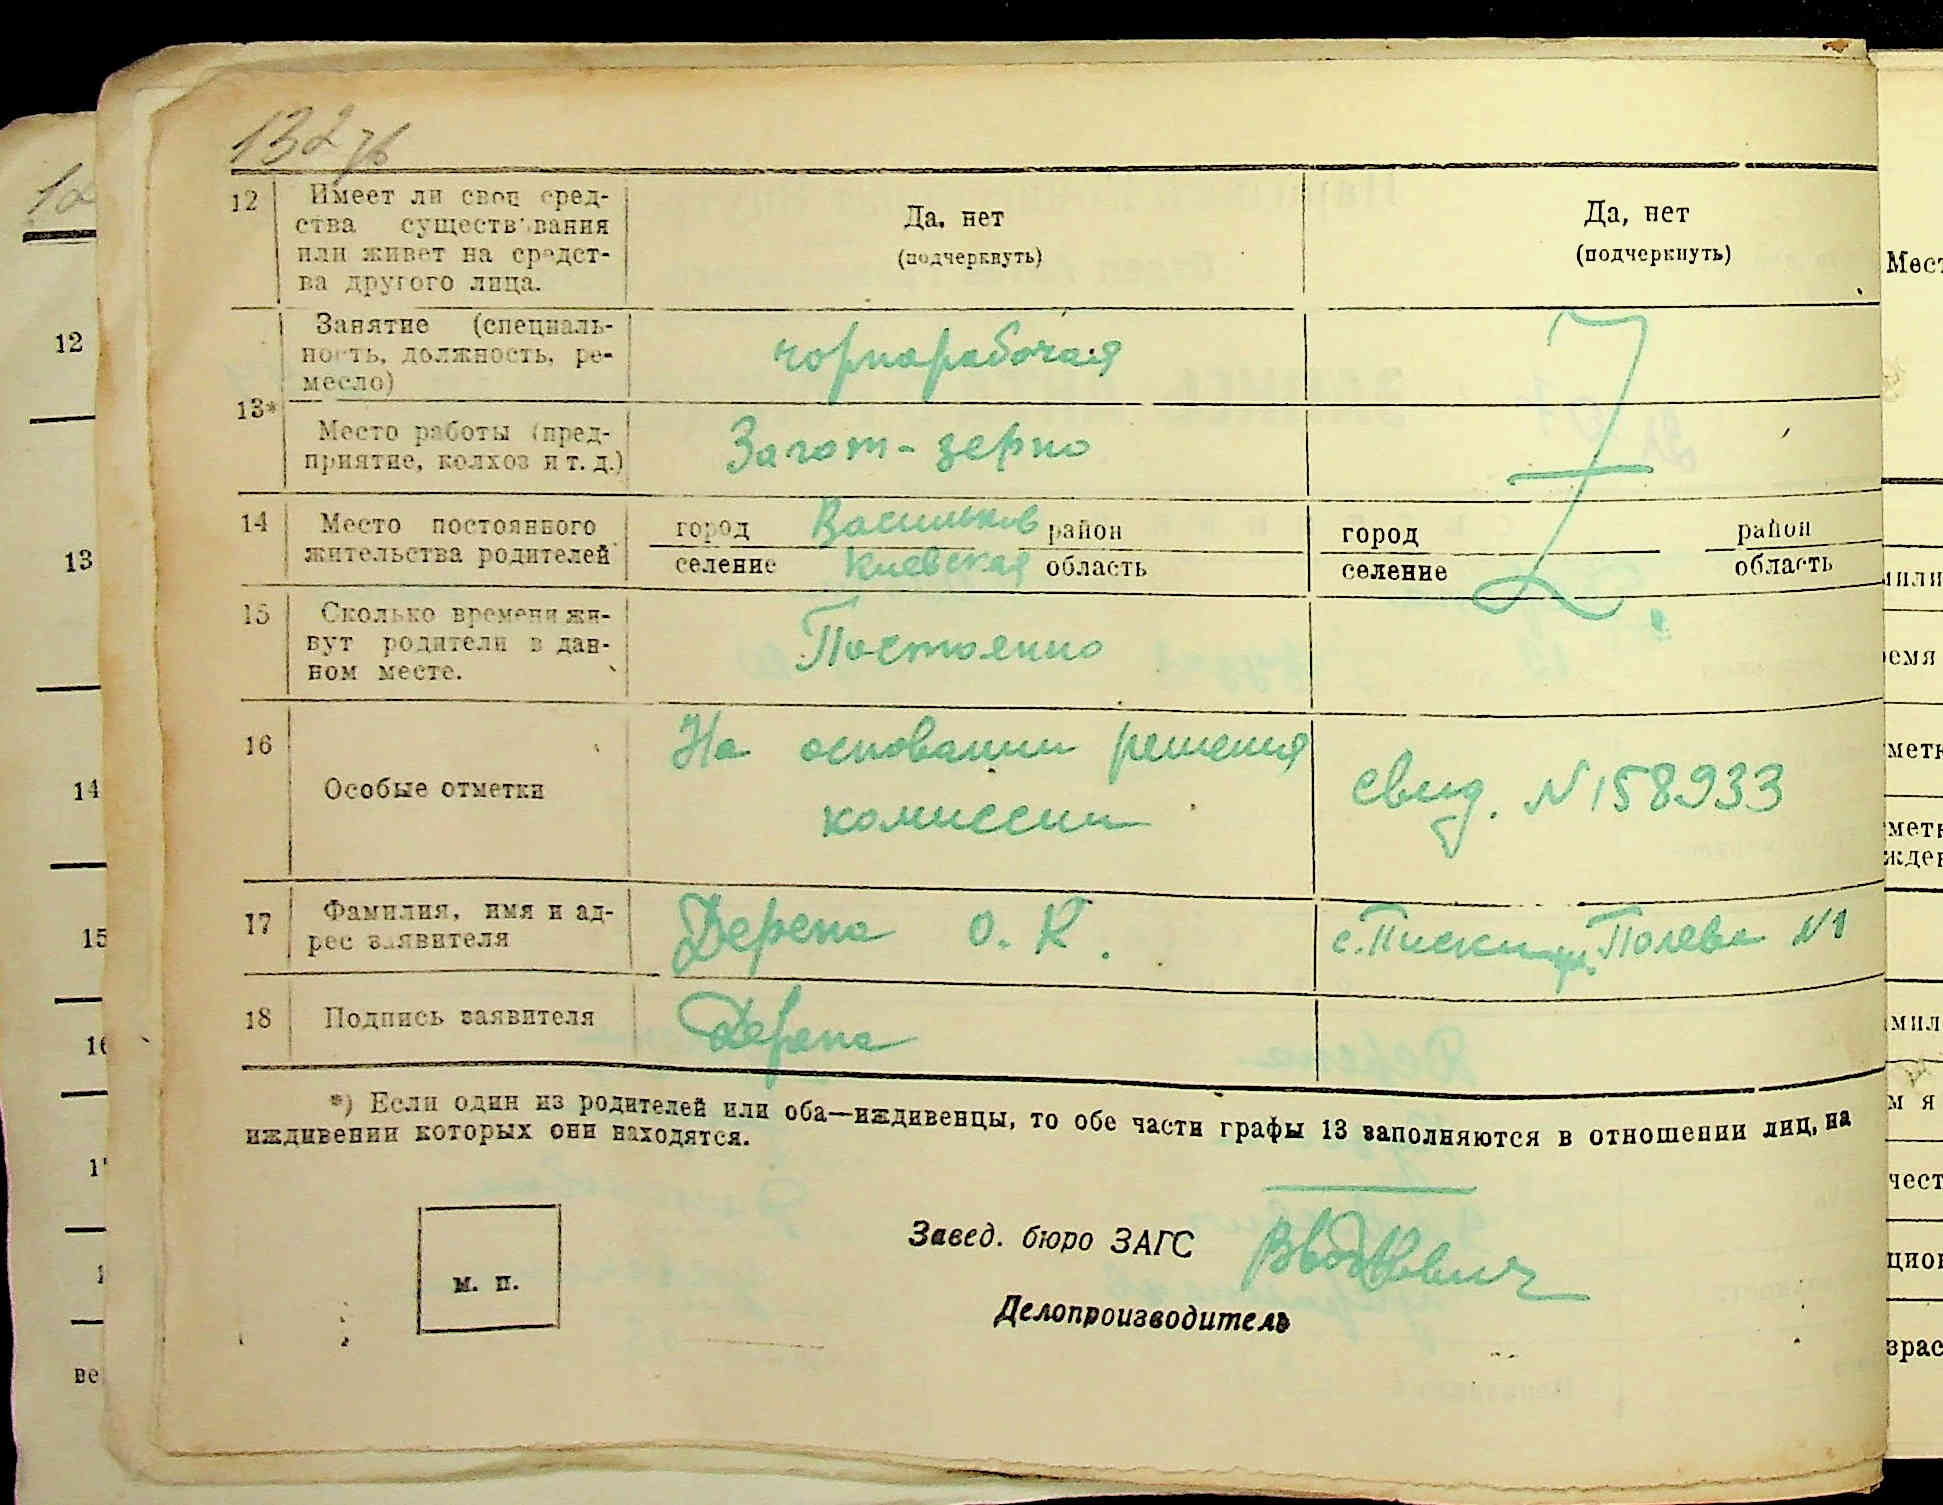 132
12 Имеет ли свои сред-
ства существования
или живет на средст-
ва другого лица.
Да, нет
(подчеркнуть)
Да, нет
(подчеркнуть)
13*
Занятие (специаль-
ность, должность, ре-
месло)
чорнарабочая
Место работы (пред-
приятие, колхоз и т. д.)
Загот-зерно
14 Место постоянного
жительства родителей
город Васильков район
селение Киевская область
город район
селение область
15 Сколько времени жи-
вут родители в дан-
ном месте.
Постоянно
16 Особые отметки
На основании решения
комиссии
свид. №158933
17 Фамилия, имя и ад-
рес заявителя
Дерена О. К.
с. Писки ул. Полева №1
18 Подпись заявителя
Дерена
*) Если один из родителей или оба—иждивенцы, то обе части графы 13 заполняются в отношении лиц, на
иждивении которых они находятся.
м. п.
Завед. бюро ЗАГС
Делопроизводитель
12
13
14
15
16
Мест
мили
ремя
метк
метк
жден
мил
м я
чест
цион
зрас
ве